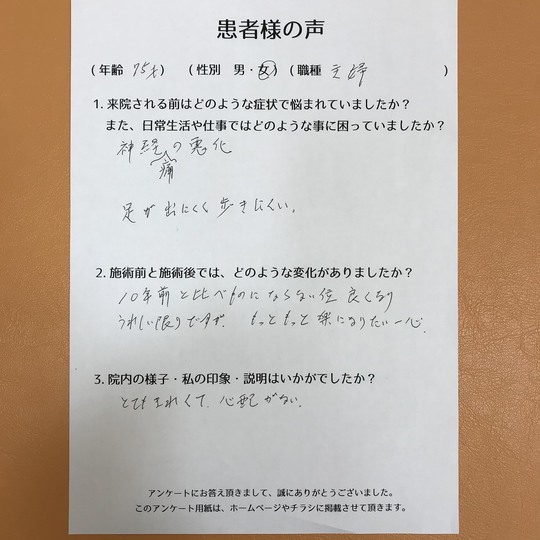 患者様の声
(年齢 75才) (性別 男・女) (職種 主婦 )
1. 来院される前はどのような症状で悩まれていましたか?
また、日常生活や仕事ではどのような事に困っていましたか?
神経痛の悪化
足が出にくく歩きにくい。
2. 施術前と施術後では、どのような変化がありましたか?
10年前と比べものにならない位 良くなり
うれしい限りですが もっともっと楽になりたい一心。
3. 院内の様子・私の印象・説明はいかがでしたか?
とても きれくて 心配がない。
アンケートにお答え頂きまして、誠にありがとうございました。
このアンケート用紙は、ホームページやチラシに掲載させて頂きます。